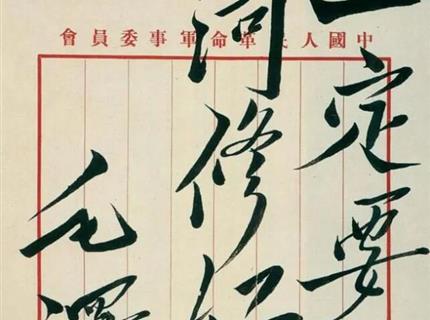 中國人民革命軍事委員會
一定要
河修好
毛澤